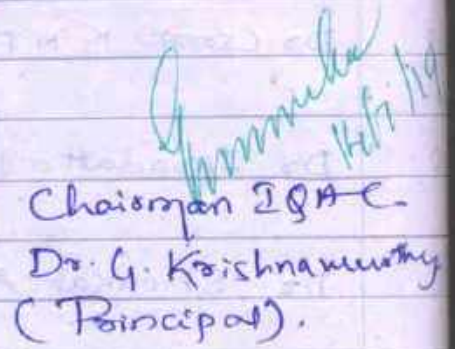 Chairman IQAC.
Dr. G. Krishnamurthy
(Principal).